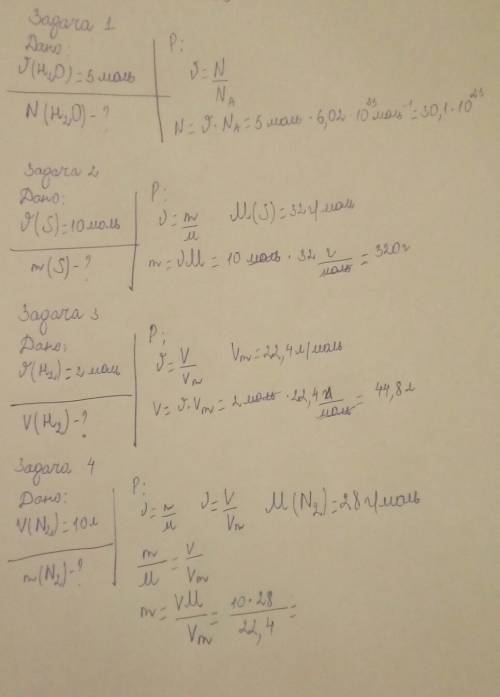 Задача 1
Дано:
ϑ(H₂O)=5 моль
N(H₂O)-?
Р:
ϑ=N/N_A
N=ϑ·N_A=5 моль·6,02·10²³моль⁻¹=30,1·10²³
Задача 2
Дано:
ϑ(S)=10 моль
m(S)-?
Р:
ϑ=m/M M(S)=32 г/моль
m=ϑM=10 моль·32 г/моль=320г
Задача 3
Дано:
ϑ(H₂)=2 моль
V(H₂)-?
Р:
ϑ=V/Vm Vm=22,4 л/моль
V=ϑ·Vm=2 моль·22,4 л/моль=44,8 л
Задача 4
Дано:
V(N₂)=10 л
m(N₂)-?
Р:
ϑ=m/M ϑ=V/Vm M(N₂)=28 г/моль
m/M=V/Vm
m=VM/Vm=10·28/22,4=